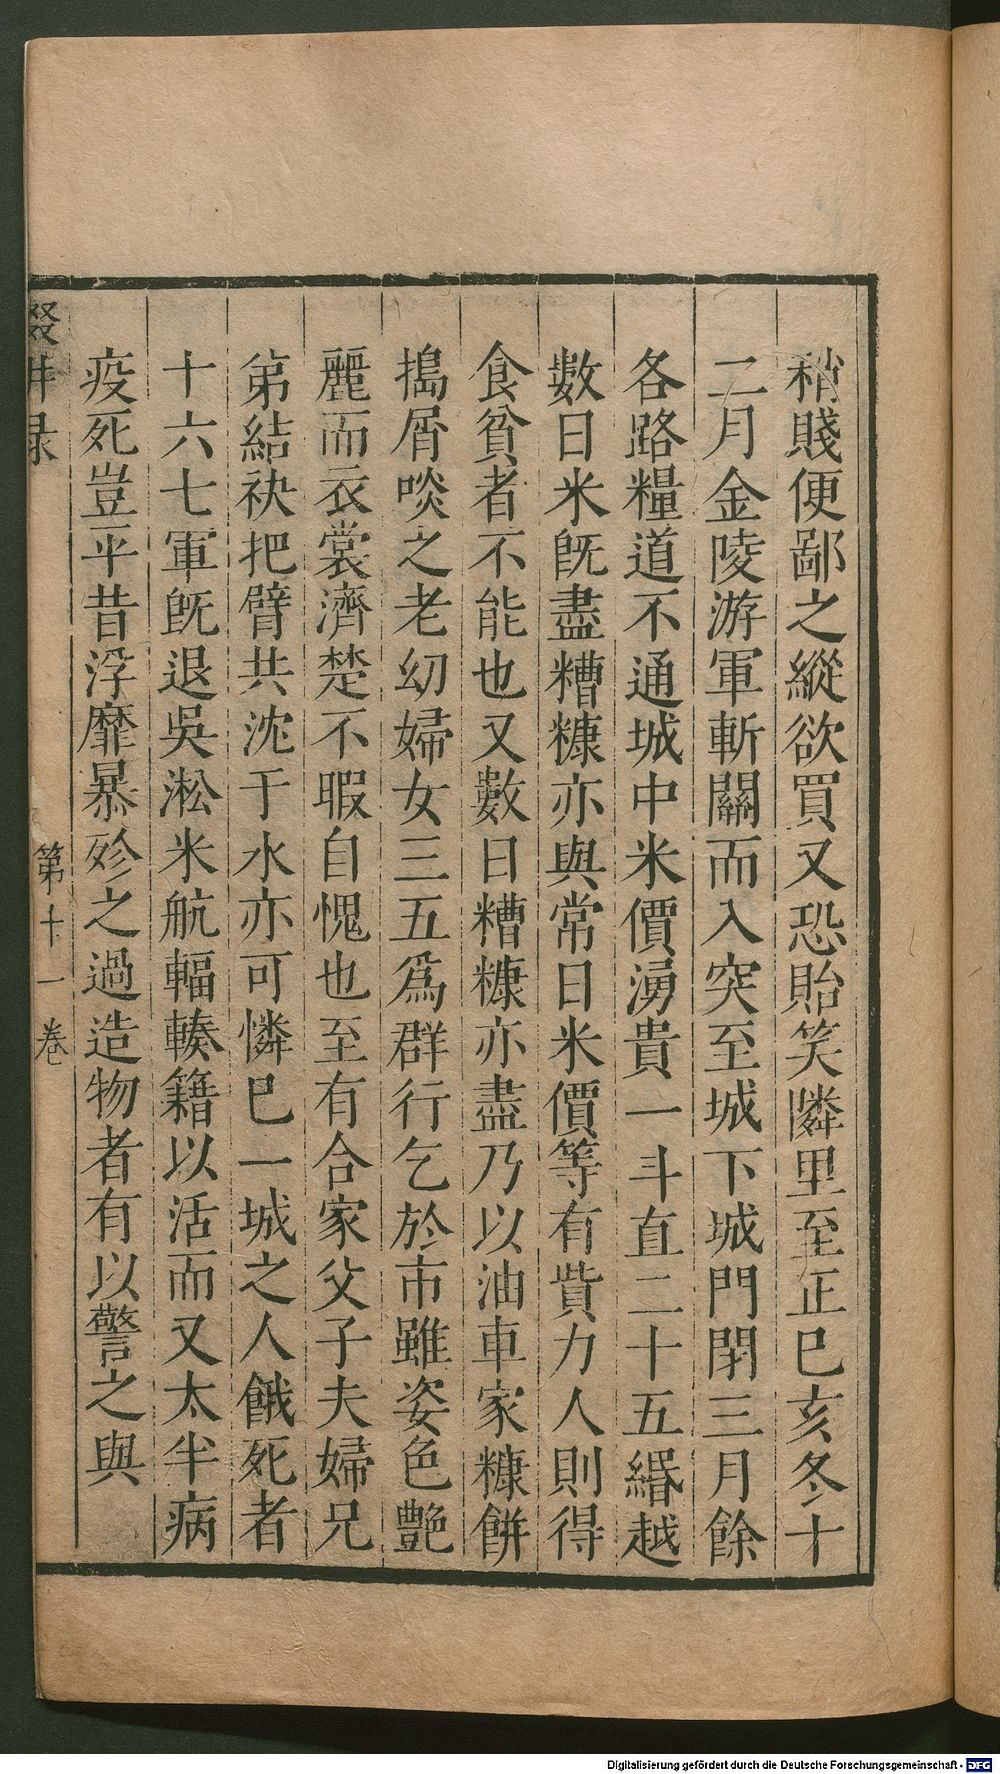 稍賤便鄙之縱欲買又恐貽笑隣里至正巳亥冬十
二月金陵游軍斬關而入突至城下城門閉三月餘
各路糧道不通城中米價湧貴一斗直二十五緡越
數日米旣盡糟糠亦與常日米價等有貲力人則得
食貧者不能也又數日糟糠亦盡乃以油車家糠餅
搗屑啖之老幼婦女三五爲群行乞於市雖姿色艶
麗而衣裳濟楚不暇自愧也至有合家父子夫婦兄
弟結袂把臂共沈于水亦可憐巳一城之人餓死者
十六七軍旣退吳淞米航輻輳籍以活而又太半病
疫死豈平昔浮靡暴殄之過造物者有以警之與
輟耕录 第十一卷
Digitalisierung gefördert durch die Deutsche Forschungsgemeinschaft - DFG